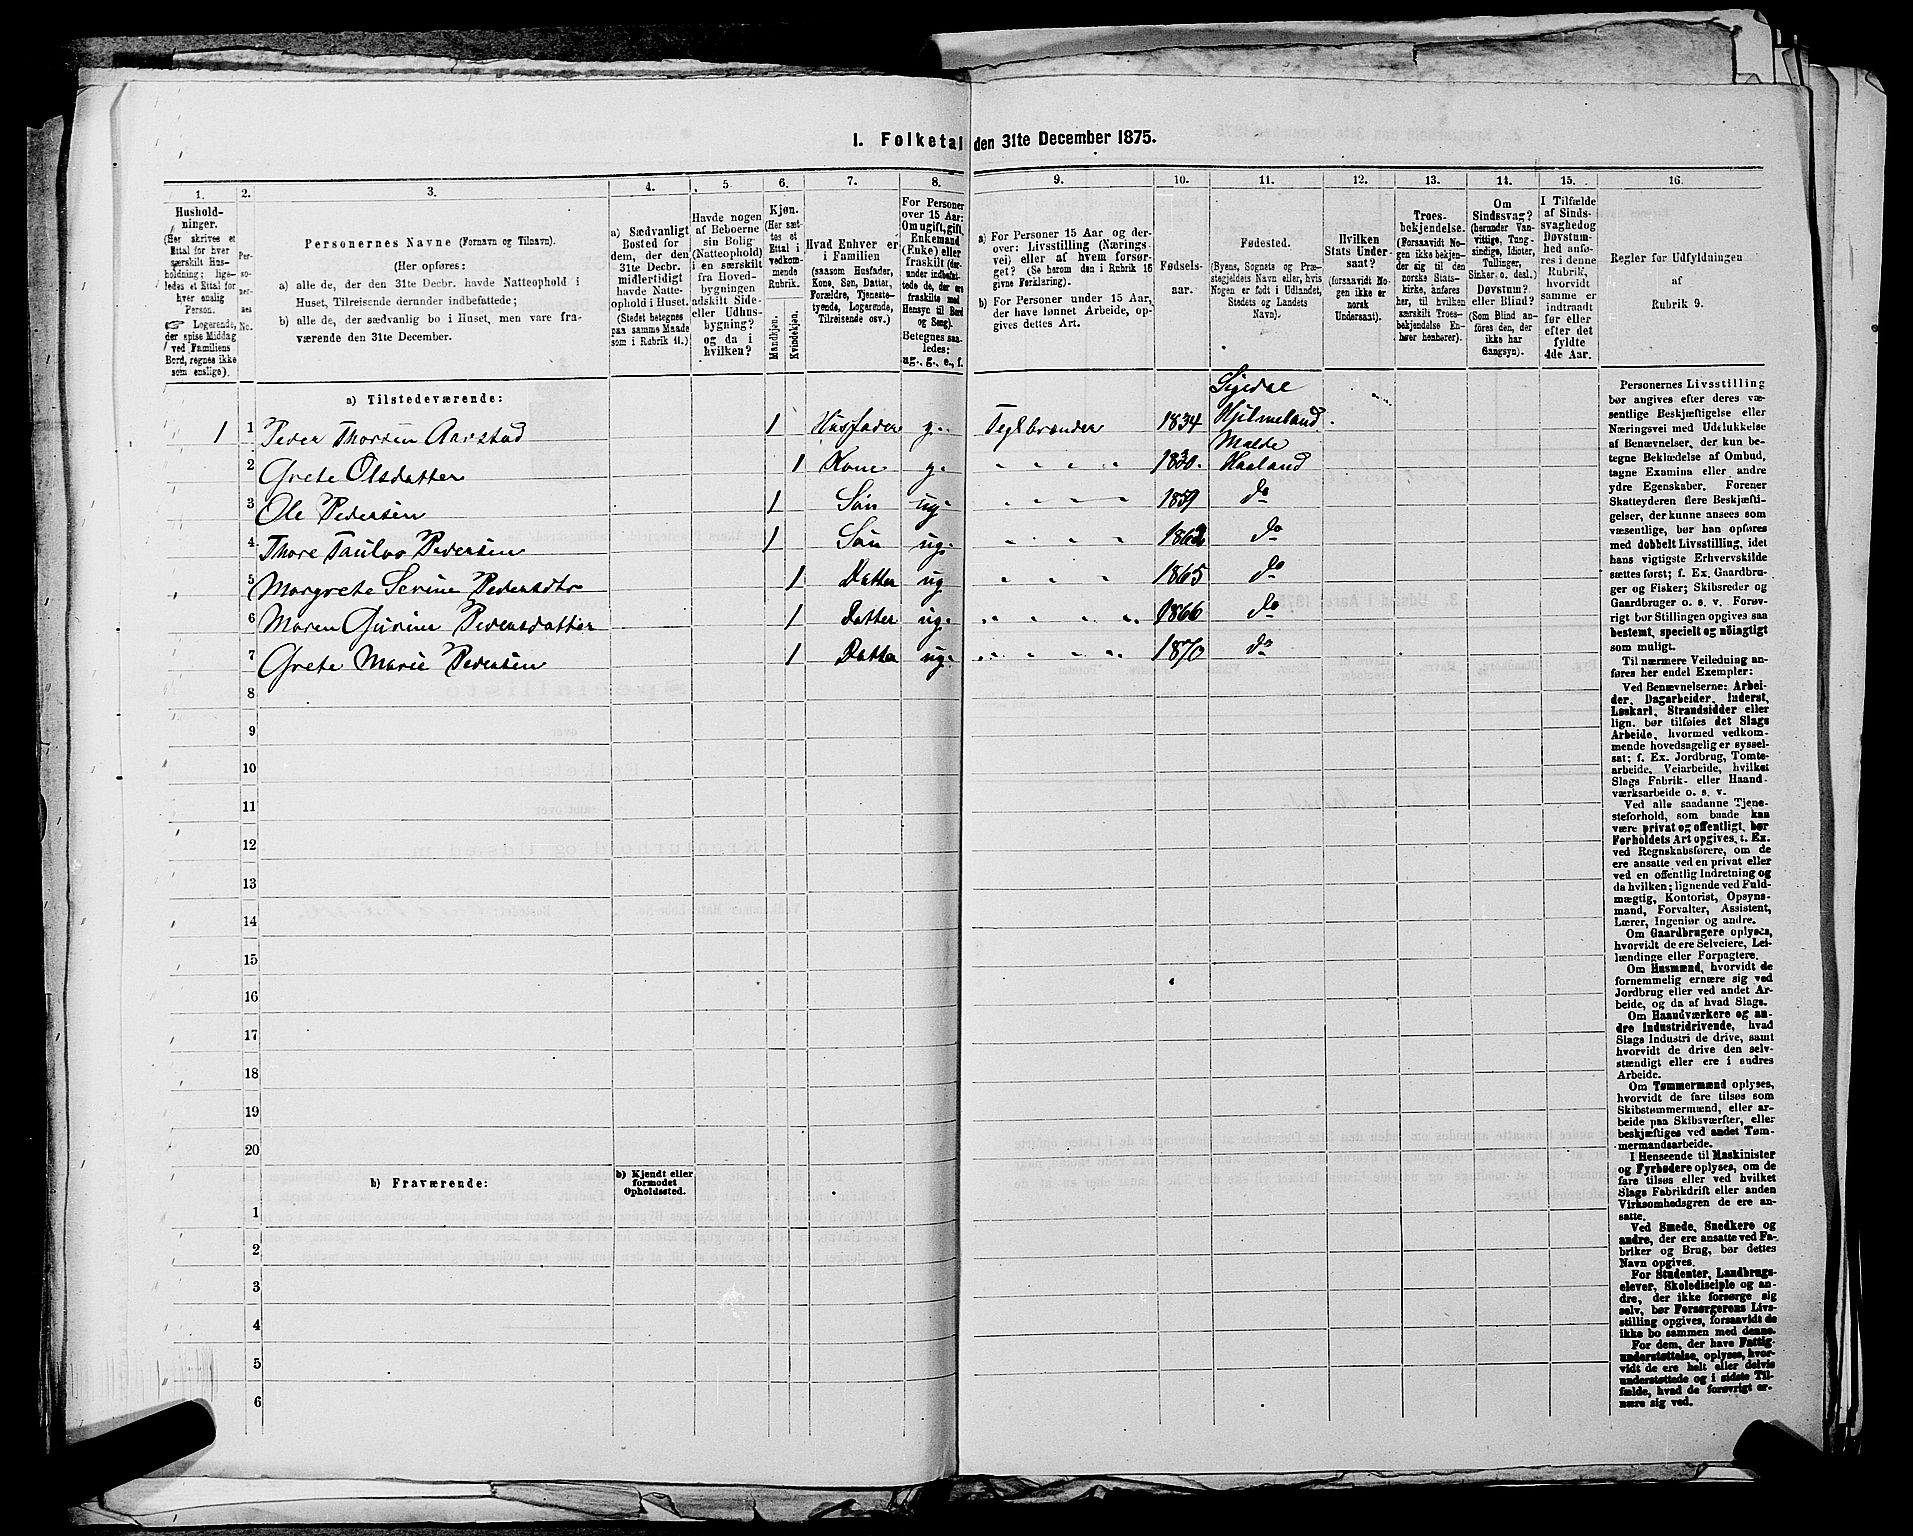 I. Folketal den 31te December 1875.
1. 2. 3. 4. 5 6. 7. 8. 9. 10. 11. 12. 13. 14. 15. 16.
Husholdninger.
(Her skrives et
Ettal for hver
særskilt Husholdning;
ligeledes et Ettal for
hver enslig
Person.
☞ Logerende,
der spise Middag
ved Familiens
Bord, regnes ikke
som enslige).
Personernes No.
Personernes Navne (Fornavn og Tilnavn).
(Her opføres:
a) alle de, der den 31te Decbr. havde Natteophold i
Huset, Tilreisende derunder indbefattede;
b) alle de, der sædvanlig bo i Huset, men vare fraværende
den 31te December.
a) Sædvanligt
Bosted for
dem, der den
31te Decbr.
midlertidigt
havde Natteophold
i Huset.
(Stedet betegnes
paa samme Maade
som i Rubrik 11.)
Havde nogen
af Beboerne
sin Bolig
(Natteophold)
i en særskilt
fra Hovedbygningen
adskilt Side-
eller Udhusbygning?
og da i
hvilken?
Kjøn.
(Her sættes
et
Ettal i
vedkommende
Rubrik.
Mandkjøn.
Kvindekjøn.
Hvad Enhver er
i Familien
(saasom Husfader,
Kone, Søn, Datter,
Forældre, Tjenestetyende,
Logerende,
Tilreisende osv.)
For Personer
over 15 Aar:
Om ugift, gift,
Enkemand
(Enke) eller
fraskilt (derunder
indbefattede
de, der ere
fraskilte med
Hensyn til Bord
og Seng).
Betegnes saaledes:
ug., g., e., f.
a) For Personer 15 Aar og derover:
Livsstilling (Næringsvei)
eller af hvem forsørget?
(Se herom den i Rubrik 16
givne Forklaring).
b) For Personer under 15 Aar,
der have lønnet Arbeide, opgives
dettes Art.
Fødselsaar.
Fødested.
(Byens, Sognets og Præstegjeldets
Navn eller, hvis
Nogen er født i Udlandet,
Stedets og Landets
Navn).
Hvilken
Stats Undersaat?
(forsaavidt Nogen
ikke er
norsk
Undersaat).
Troesbekjendelse.
(Forsaavidt Nogen
ikke bekjender
sig til den
norske Statskirke,
anføres
her, til hvilken
særskilt Troesbekjendelse
Enhver
henhører).
Om
Sindssvag?
(herunder Vanvittige,
Tungsindige,
Idioter,
Tullinger,
Sinker o. desl.)
Døvstum?
eller Blind?
(Som Blind anføres
den, der
ikke har
Gangsyn).
I Tilfælde
af Sindssvaghed
og
Døvstumhed
anføres
i denne
Rubrik,
hvorvidt
samme er
indtraadt
før eller
efter det
fyldte
4de Aar.
Regler før Udfyldningen
af
Rubrik 9.
a) Tilstedeværende:
1 1 Peder Thorsen Aarstad 1 Husfader g. Teglbrænder 1834 Hjelmeland
2 Grete Olsdatter 1 Kone g. " " " " 1830. Malde Haaland
3 Ole Pedersen 1 Søn ug " " " " 1859 do
4 Thore Paulus Pedersen 1 Søn ug. " " " " 1862 do
5 Margrete Serine Pedersdtr 1 Datter ug " " " " 1865 do
6 Maren Gurine Pedersdatter 1 Datter ug. " " " " 1866 do
7 Grete Marie Pedersen 1 Datter ug. " " " " 1870 do
8
9
10
11
12
13
14
15
16
17
18
19
20
b) Fraværende:
b) Kjendt eller
formodet
Opholdssted.
1
2
3
4
5
6
Personernes Livsstilling
bør angives efter deres væsentlige
Beskjæftigelse eller
Næringsvei med Udelukkelse
af Benævnelser, der kun betegne
Beklædelse af Ombud,
tagne Examina eller andre
ydre Egenskaber. Forener
Skatteyderen flere Beskjæftigelser,
der kunne ansees som
væsentlige, bør han opføres
med dobbelt Livsstilling, idet
hans vigtigste Erhvervskilde
sættes først; f. Ex. Gaardbruger
og Fisker; Skibsreder og
Gaardbruger o. s. v. Forøvrigt
bør Stillingen opgives saa
bestemt, specielt og nöiagtigt
som muligt.
Til nærmere Veiledning anføres
her endel Exempler:
Ved Benævnelserne: Arbeider,
Dagarbeider, Inderst,
Løskarl, Strandsidder eller
lign. bør tilføies det Slags
Arbeide, hvormed vedkommende
hovedsagelig er sysselsat;
f. Ex. Jordbrug, Tomtearbeide,
Veiarbeide, hvilket
Slags Fabrik- eller Haandværksarbeide
o. s. v.
Ved alle saadanne Tjenesteforhold,
som baade kan
være privat og offentligt, bør
Forholdets Art opgives, t. Ex.
ved Regnskabsførere, om de
ere ansatte ved en privat eller
ved en offentlig Indretning og
da hvilken; lignende ved Fuldmægtig,
Kontorist, Opsynsmand,
Forvalter, Assistent,
Lærer, Ingeniør og andre.
Om Gaardbrugere oplyses,
hvorvidt de ere Selveiere, Leilændinge
eller Forpagtere.
Om Husmænd, hvorvidt de
fornemmelig ernære sig ved
Jordbrug eller ved andet Arbeide,
og da af hvad Slags.
Om Haandværkere og andre
industridrivende, hvad
Slags Industri de drive, samt
hvorvidt de drive den selvstændigt
eller ere i andres
Arbeide.
Om Tømmermænd oplyses,
hvorvidt de fare tilsøs som
Skibstømmermænd, eller arbeide
paa Skibsværfter, eller
beskjæftiges ved andet Tømmermandsarbeide.
I Henseende til Maskinister
og Fyrbødere oplyses, om de
fare tilsøs eller ved hvilket
Slags Fabrikdrift eller anden
Virksomhedsgren de ere ansatte.
Ved Smede, Snedkere og
andre, der ere ansatte ved Fabriker
og Brug, bør dettes
Navn opgives.
For Studenter, Landbrugselever,
Skoledisciple og andre,
der ikke forsørge sig
selv, bør Forsørgerens Livsstilling
opgives, forsaavidt de
ikke bo sammen med denne.
For dem, der have Fattigunderstøttelse,
oplyses, hvorvidt
de ere helt eller delvis
understøttede og i sidste Tilfælde,
hvad de forøvrigt ernære
sig ved.